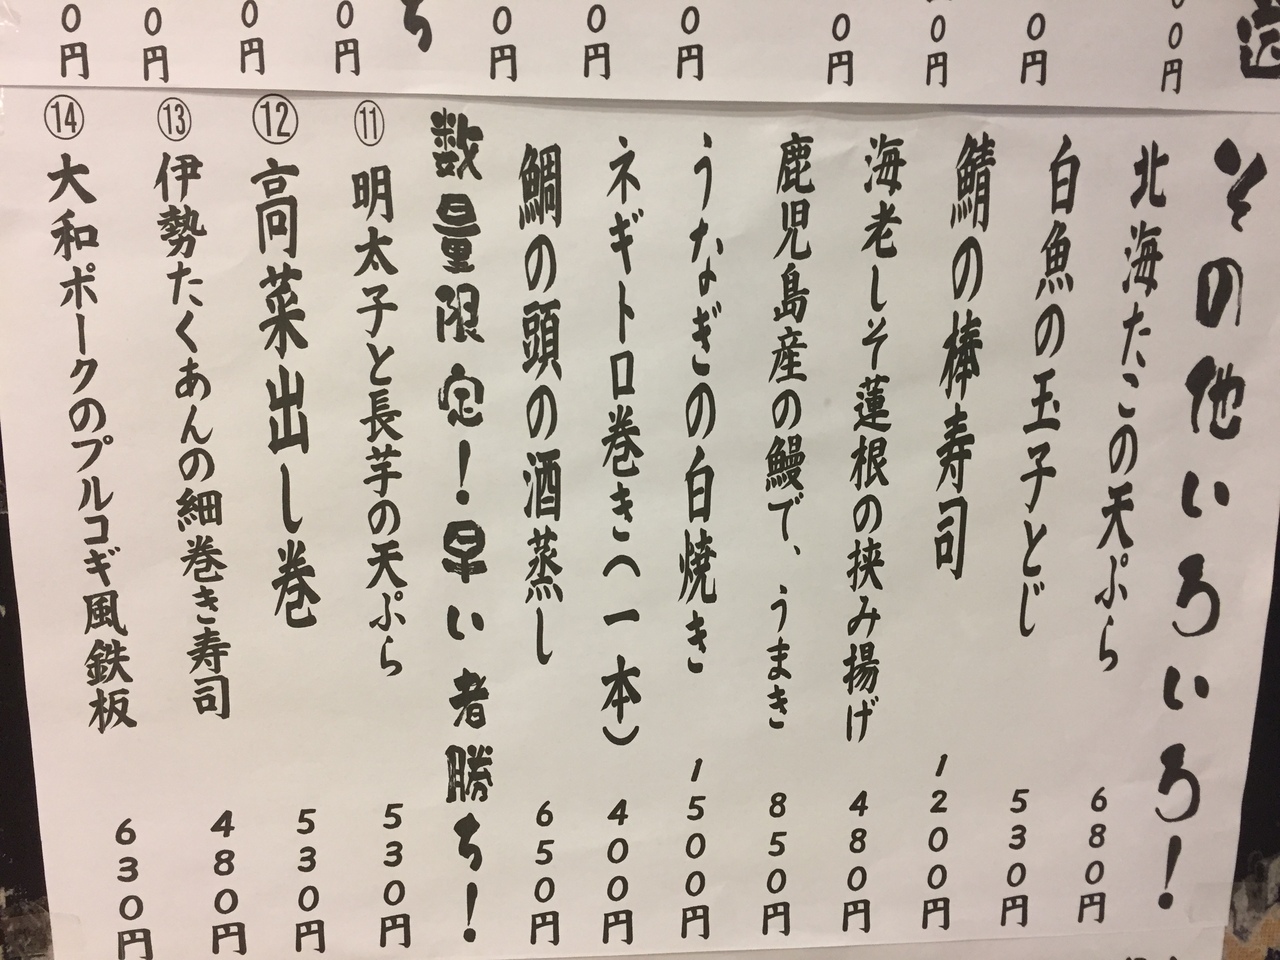 その他いろいろ!
北海たこの天ぷら 680円
白魚の玉子とじ 530円
鯖の棒寿司 1200円
海老しそ蓮根の挟み揚げ 480円
鹿児島産の鰻で、うまき 850円
うなぎの白焼き 1500円
ネギトロ巻き(一本) 400円
鯛の頭の酒蒸し 650円
数量限定!早い者勝ち!
⑪ 明太子と長芋の天ぷら 530円
⑫ 高菜出し巻 530円
⑬ 伊勢たくあんの細巻き寿司 480円
⑭ 大和ポークのプルコギ風鉄板 630円